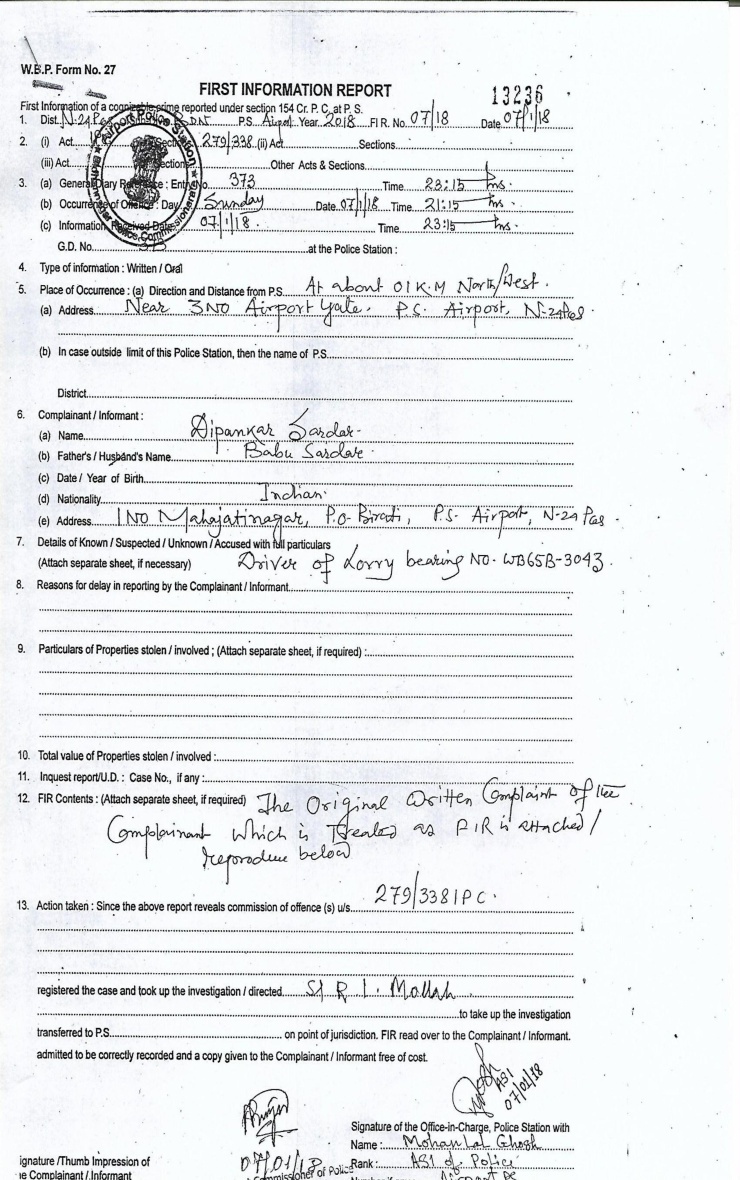 W.B.P. Form No. 27
FIRST INFORMATION REPORT
13236
First Information of a cognizable crime reported under section 154 Cr. P. C. at P. S.
1. Dist. N-24 P.S. Airport Year 2018 FIR. No. 07/18 Date 07/1/18
2. (i) Act Sections 279/338 (ii) Act Sections
(iii) Act Sections Other Acts & Sections
3. (a) General Diary Reference : Entry No. 373 Time 23:15 hrs.
(b) Occurrence of Offence : Day Sunday Date 07/1/18 Time 21:15 hrs.
(c) Information Received Date 07/1/18. Time 23:15 hrs.
G.D. No. at the Police Station :
4. Type of information : Written / Oral
5. Place of Occurrence : (a) Direction and Distance from P.S. At about 01 K.M North/West.
(a) Address Near 3NO Airport Gate. P.S. Airport, N-24Pgs
(b) In case outside limit of this Police Station, then the name of P.S.
District
6. Complainant / Informant :
(a) Name Dipankar Sardar
(b) Father's / Husband's Name Babu Sardar
(c) Date / Year of Birth
(d) Nationality Indian
(e) Address 1NO Mahajatinagar, P.O- Birati, P.S- Airport, N-24 Pgs.
7. Details of Known / Suspected / Unknown / Accused with full particulars
(Attach separate sheet, if necessary) Driver of Lorry bearing NO- WB65B-3043.
8. Reasons for delay in reporting by the Complainant / Informant
9. Particulars of Properties stolen / involved ; (Attach separate sheet, if required) :
10. Total value of Properties stolen / involved :
11. Inquest report/U.D. : Case No., if any :
12. FIR Contents : (Attach separate sheet, if required) The Original Written Complaint of the
Complainant which is treated as FIR is attached /
reproduce below
13. Action taken : Since the above report reveals commission of offence (s) u/s. 279/338 IPC.
registered the case and took up the investigation / directed SI R. I. Mollah
to take up the investigation
transferred to P.S. on point of jurisdiction. FIR read over to the Complainant / Informant.
admitted to be correctly recorded and a copy given to the Complainant / Informant free of cost.
ASI
07/01/18
Signature of the Office-in-Charge, Police Station with
Name : Mohan Lal Ghosh
07/01/18
ignature /Thumb Impression of
Commissioner of Police
Rank : ASI of Police
he Complainant / Informant
Airport PS